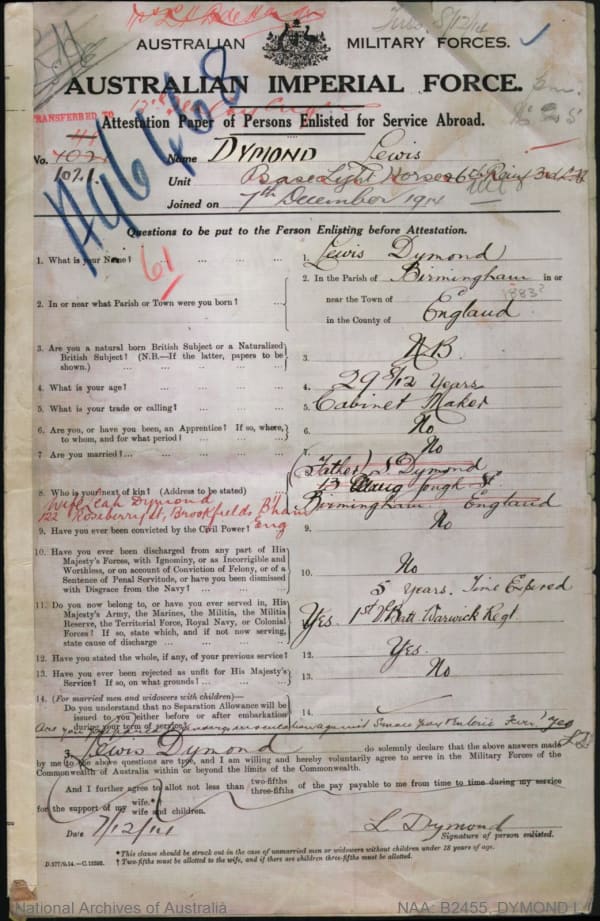 Tues 8/12/14
AUSTRALIAN MILITARY FORCES.
AUSTRALIAN IMPERIAL FORCE.
TRANSFERRED TO
Attestation Paper of Persons Enlisted for Service Abroad.
No. 1021. Name DYMOND Lewis
Unit Base Light Horse 6th Reinf 3rd L.H
Joined on 7th December 1914
Questions to be put to the Person Enlisting before Attestation.
61
1. What is your Name? 1. Lewis Dymond
2. In or near what Parish or Town were you born? 2. In the Parish of Birmingham in or
near the Town of 1883?
in the County of England
3. Are you a natural born British Subject or a Naturalized British Subject? (N.B.—If the latter, papers to be shown.) 3. N.B.
4. What is your age? 4. 29 5/12 Years
5. What is your trade or calling? 5. Cabinet Maker
6. Are you, or have you been, an Apprentice? If so, where, to whom, and for what period? 6. No
7. Are you married? 7. No
8. Who is your next of kin? (Address to be stated) 8. (Father) Dymond
Birmingham England
Wife Leah Dymond
122 Roseberry St, Brookfields, B'ham
Eng
9. Have you ever been convicted by the Civil Power? 9. No
10. Have you ever been discharged from any part of His Majesty's Forces, with Ignominy, or as Incorrigible and Worthless, or on account of Conviction of Felony, or of a Sentence of Penal Servitude, or have you been dismissed with Disgrace from the Navy? 10. No
11. Do you now belong to, or have you ever served in, His Majesty's Army, the Marines, the Militia, the Militia Reserve, the Territorial Force, Royal Navy, or Colonial Forces? If so, state which, and if not now serving, state cause of discharge Yes. 1st V. Batt. Warwick Regt 5 Years. Time Expired
12. Have you stated the whole, if any, of your previous service? 12. Yes.
13. Have you ever been rejected as unfit for His Majesty's Service? If so, on what grounds? 13. No
14. (For married men and widowers with children)—
Do you understand that no Separation Allowance will be issued to you either before or after embarkation during your term of service? 14.
Are you inoculation against Small pox Enteric Fever) Yes
L.D.
I, Lewis Dymond do solemnly declare that the above answers made
by me to the above questions are true, and I am willing and hereby voluntarily agree to serve in the Military Forces of the
Commonwealth of Australia within or beyond the limits of the Commonwealth.
And I further agree to allot not less than two-fifths three-fifths of the pay payable to me from time to time during my service
for the support of my wife.* wife and children.
Date 7/12/14 L. Dymond
Signature of person enlisted.
*This clause should be struck out in the case of unmarried men or widowers without children under 18 years of age.
D.577/9.14.—C.12595. † Two-fifths must be allotted to the wife, and if there are children three-fifths must be allotted.
National Archives of Australia NAA: B2455, DYMOND L